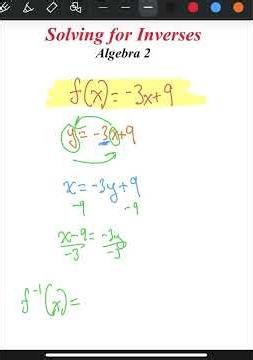 Solving for Inverses
Algebra 2
f(x) = -3x+9
y = -3x+9
x = -3y+9
-9 -9
x-9 = -3y
-3 -3
f⁻¹(x) =